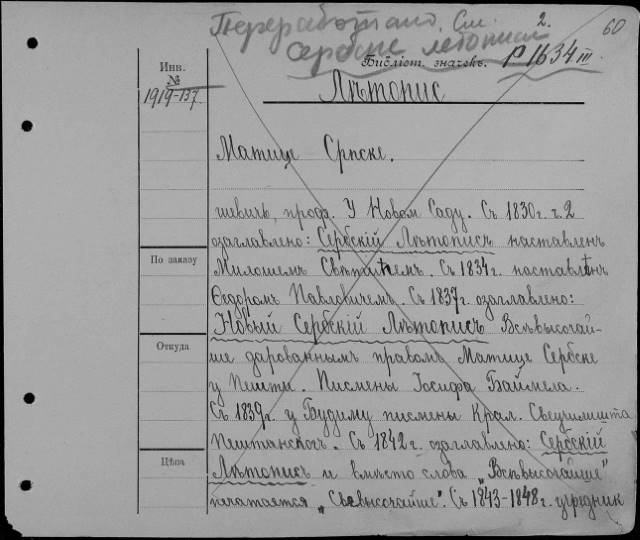 Переработано. См. 2.
60
Сербске летописи
Библіот. значекъ. P 1634 III
Инв.
№
1919-137.
Лѣтопис
Матице Српске.
шевичъ, проф. У Новом Саду. Съ 1830 г. ч. 2
озаглавлено: Сербскій Лѣтописъ наставленъ
По заказу
Милошемъ Свѣтићемъ. Съ 1834 г. наставлѣнъ
Ѳедоромъ Павловичемъ. Съ 1837 г. озоглавлено:
Новый Сербскій Лѣтописъ Всѣвысочай-
Откуда
ше дарованнымъ правомъ Матице Сербске
у Пешти. Писмены Іосифа Баймела.
Съ 1839 г. у Будиму писмены Крал. Свеучилишта
Пештанскогъ. Съ 1842 г. озоглавлено: Сербскій
Цѣна
Лѣтописъ и вмѣсто слова "Всѣвысочайше"
печатается "Свевысочайше". Съ 1843-1848 г. учредник